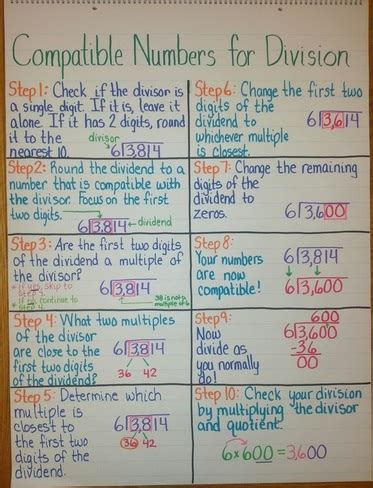 Compatible Numbers for Division
Step 1: Check if the divisor is
a single digit. If it is, leave it
alone. If it has 2 digits, round
it to the
nearest 10.
divisor
6 3,814
Step 2: Round the dividend to a
number that is compatible with
the divisor. Focus on the first
two digits.
6 3,814 ←dividend
Step 3: Are the first two digits
of the dividend a multiple of
the divisor?
* If yes, skip to
* If no, continue to
6 3,814
38 is not a
multiple of 6
Step 4: What two multiples
of the divisor
are close to the
first two digits
of the dividend?
6 3,814
36 42
Step 5: Determine which
multiple is
closest to
the first two
digits of the
dividend.
6 3,814
36 42
Step 6: Change the first two
digits of the
dividend to
whichever multiple
is closest.
6 3,614
Step 7: Change the remaining
digits of the
dividend to
zeros.
6 3,600
Step 8:
Your numbers
are now
compatible!
6 3,814
6 3,600
Step 9:
Now
divide as
you normally
do!
600
6 3,600
-36
00
Step 10: Check your division
by multiplying the divisor
and quotient.
6×600=3,600